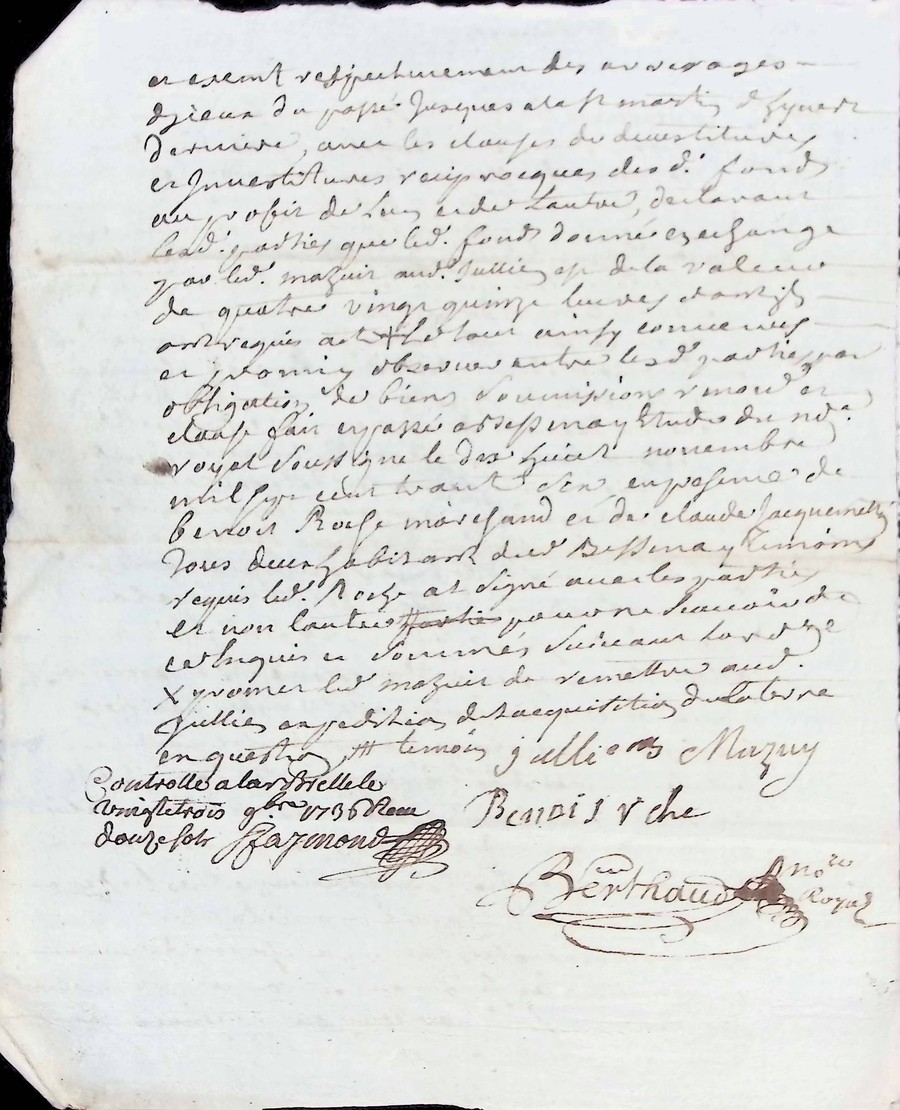 et exemt respectivement des arrerages
d'jceux du passé jusques a la st martin d'hyvert
derniere, avec les clauses de devestitures
et jnvestitures reciprocques desd. fonds
au profit de l'un et de l'autre, declarant
lesd. parties que led. fond donné en echange
par led. mazuir aud. Jullien est de la valeur
de quatre vingt quinze livres dont ils
ont requis act X Le tout ainsy convenus
et promis observer entre lesd. parties par
obligation de biens soumissions renond. et
clause fait et passé a Bessenay Etude du no.re
royal soussigné le dix huict novembre
mil sept cent trante six en presence de
benoit Roche marchand et de claude Jacquemetton
tous deux habitant dud. Bessenay temoins
requis led. Roche at signé avec les parties
et non l'autre pour ne scavoir de
ce enquis et sommés suivant l'ord.ce
X promet led. mazuir de remettre aud.
Jullien expedition de l'acquisition de la terre
en question temoin julliens Mazuy
Controllé a larbrelle le
vingt trois 9.bre 1736 Reçu
douze sols Raymond
Benoist Roche
Berthaud no.re
Royal